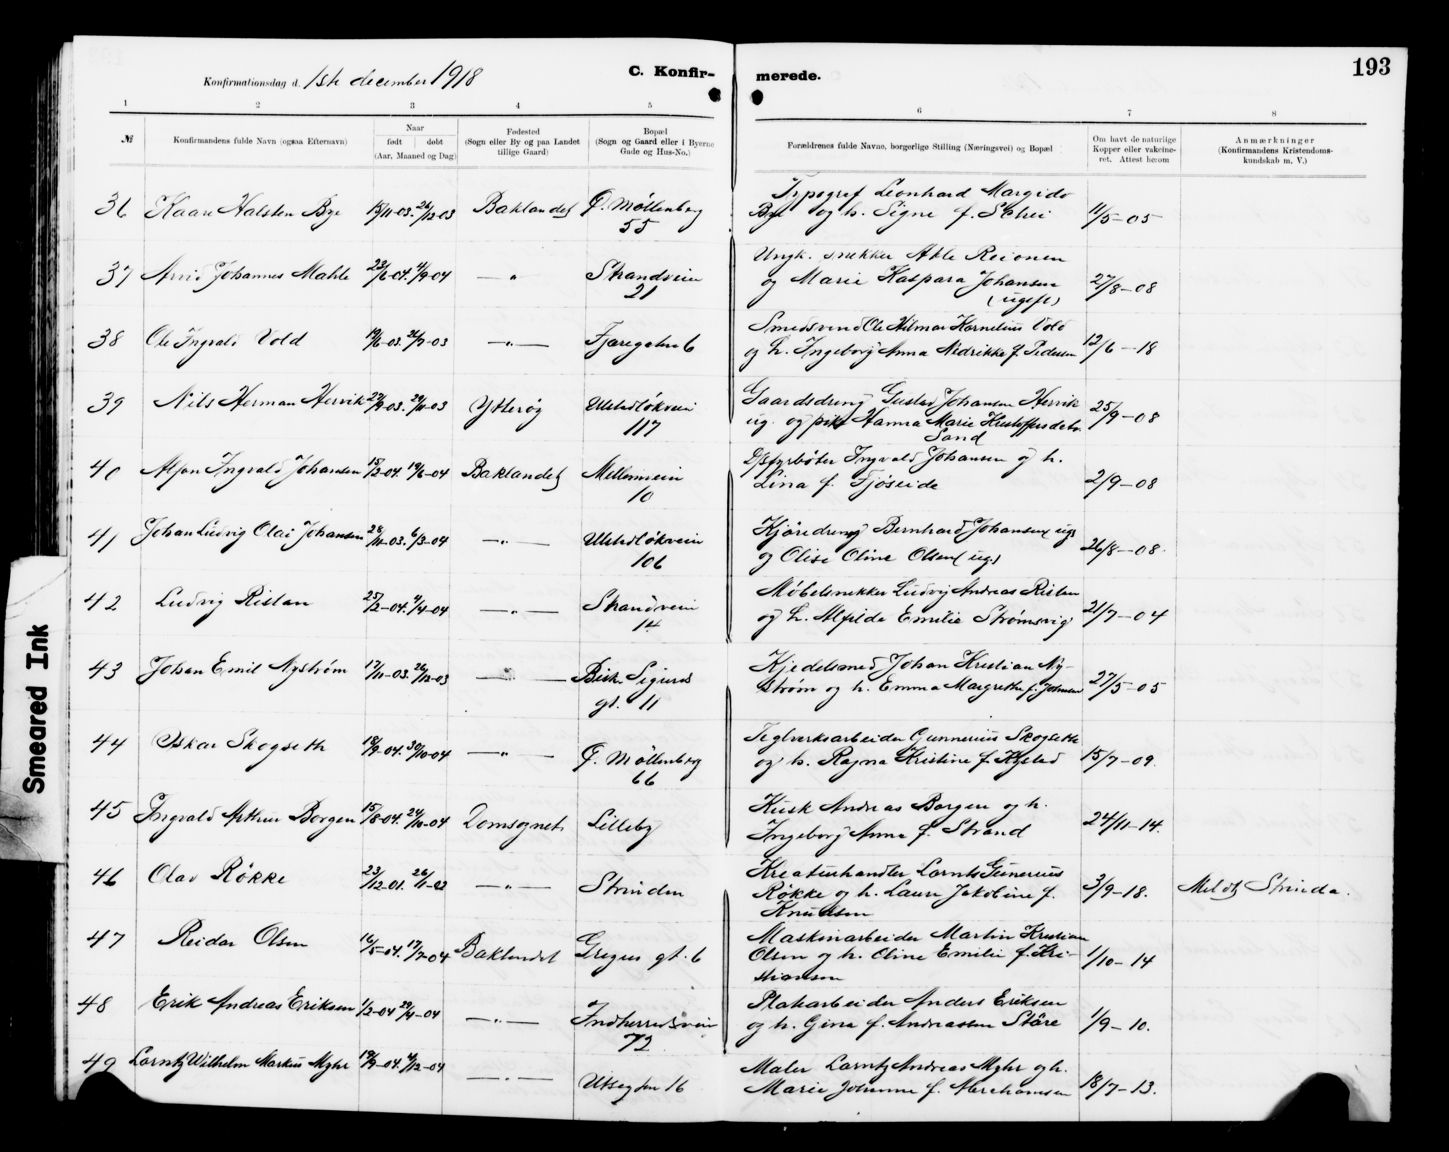 193
Konfirmationsdag d. 1ste december 1918
C. Konfir-merede.
1 2 3 4 5 6 7 8
№
Konfirmandens fulde Navn (ogsaa Efternavn)
Naar
født døbt
(Aar, Maaned og Dag)
Fødested
(Sogn eller By og paa Landet
tillige Gaard)
Bopæl
(Sogn og Gaard eller i Byerne
Gade og Hus-No.)
Forældrenes fulde Navne, borgerlige Stilling (Næringsvei) og Bopæl
Om havt de naturlige
Kopper eller vakcine-
ret. Attest herom
Anmærkninger
(Konfirmandens Kristendoms-
kundskab m. V.)
36 Kaare Halsten Bye 15/11-03. 26/12-03 Baklandet Ø. Møllenberg
55
Typograf Leonhard Margido
Bye og h. Signe f. 11/5-05
37 Arvid Johannes Mahle 23/6-04. 4/9-04 —"— Strandveien
21
Ungk. snekker Atle Reionen
og Marie Kaspara Johansen
(ugift) 27/8-08
38 Ole Ingvald Vold 19/6-03. 26/7-03 —"— Fjæregaten 6
Smedsvend Ole Hilmar Kornelius Vold
og h. Ingeborg Anna Nedrikke f. Pedersen 12/6-18
39 Nils Herman Hervik 27/9-03. 29/11-03 Ytterøy Ulstadløkveien
117
Gaardsdreng Gustav Johansen Hervik
ug. og pike Hanna Marie Kristoffersdatter
Sand 25/9-08
40 Alfon Ingvald Johansen 15/2-04. 19/6-04 Baklandet Mellemveien
10
Ingvald Johansen og h.
Lina f. Fjøseide 2/9-08
41 Johan Ludvig Olai Johansen 28/11-03. 6/3-04 —"— Ulstadløkveien
106
Kjøredreng Bernhard Johansen (ug)
og Olise Oline Olsen (ug) 26/8-08.
42 Ludvig Ristan 25/2-04. 4/4-04 —"— Strandveien
14
Møbelsnekker Ludvig Andreas Ristan
og h. Alfilde Emilie Strømsvig 21/7-04
43 Johan Emil Nystrøm 17/11-03. 26/12-03 —"— Bisk. Sigurds
gt. 11
Kjedelsmed Johan Kristian Ny-
strøm og h. Emma Margrethe f. Johnsen 27/5-05
44 Oskar Skogseth 18/9-04. 30/10-04 —"— Ø. Møllenberg
66
Teglverksarbeider Gunnerius Skogseth
og h. Ragna Kristine f. Kysted 15/7-09.
45 Ingvald Arthur Borgen 15/8-04. 24/10-04 Domsognet Lilleby
Kusk Andreas Borgen og h.
Ingeborg Anna f. Strand 24/11-14.
46 Olav Røkke 23/12-01. 26/1-02 —"— Strinden
Kreaturhandler Lornts Gunerius
Røkke og h. Laura Jakobine f.
Knudsen 3/9-18. Meldt Strinda.
47 Reidar Olsen 16/5-04. 17/7-04 Baklandet Gregus gt. 6
Maskinarbeider Martin Kristian
Olsen og h. Oline Emilie f. Kri-
stiansen 1/10-14
48 Erik Andreas Eriksen 1/2-04 29/4-04 —"— Indherredsveien
72
Platearbeider Anders Eriksen
og h. Gina f. Andreasen Støre 1/9-10.
49 Lorntz Wilhelm Markus Myhr 19/9-04. 4/12-04 —"— Utsegten 16
Maler Lorntz Andreas Myhr og h.
Marie Johanne f. 18/7-13.
Smeared Ink